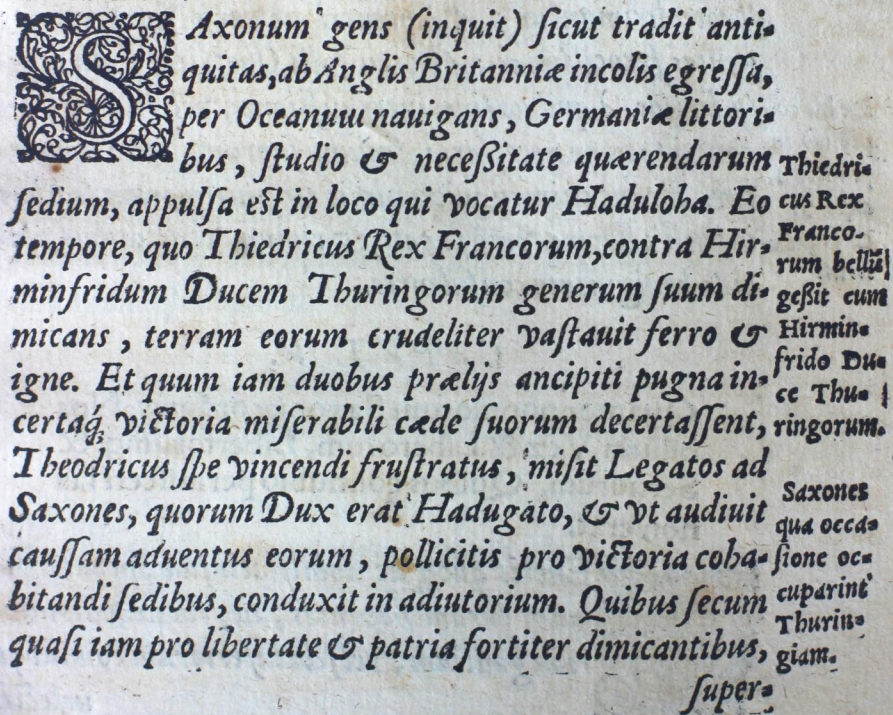 SAxonum gens (inquit) ſicut tradit anti-
quitas, ab Anglis Britanniæ incolis egreſſa,
per Oceanum nauigans, Germaniæ littori-
bus, ſtudio & neceßitate quærendarum
ſedium, appulſa eſt in loco qui vocatur Haduloha. Eo
tempore, quo Thiedricus Rex Francorum, contra Hir-
minfridum Ducem Thuringorum generum ſuum di-
micans, terram eorum crudeliter vaſtauit ferro &
igne. Et quum iam duobus prælijs ancipiti pugna in-
certaq́; victoria miſerabili cæde ſuorum decertaſſent,
Theodricus ſpe vincendi fruſtratus, miſit Legatos ad
Saxones, quorum Dux erat Hadugato, & vt audiuit
cauſſam aduentus eorum, pollicitis pro victoria coha-
bitandi ſedibus, conduxit in adiutorium. Quibus ſecum
quaſi iam pro libertate & patria fortiter dimicantibus,
ſuper-
Thiedri-
cus Rex
Franco-
rum bellū
geßit cum
Hirmin-
frido Du-
ce Thu-
ringorum.
Saxones
qua occa-
ſione oc-
cuparint
Thurin-
giam.